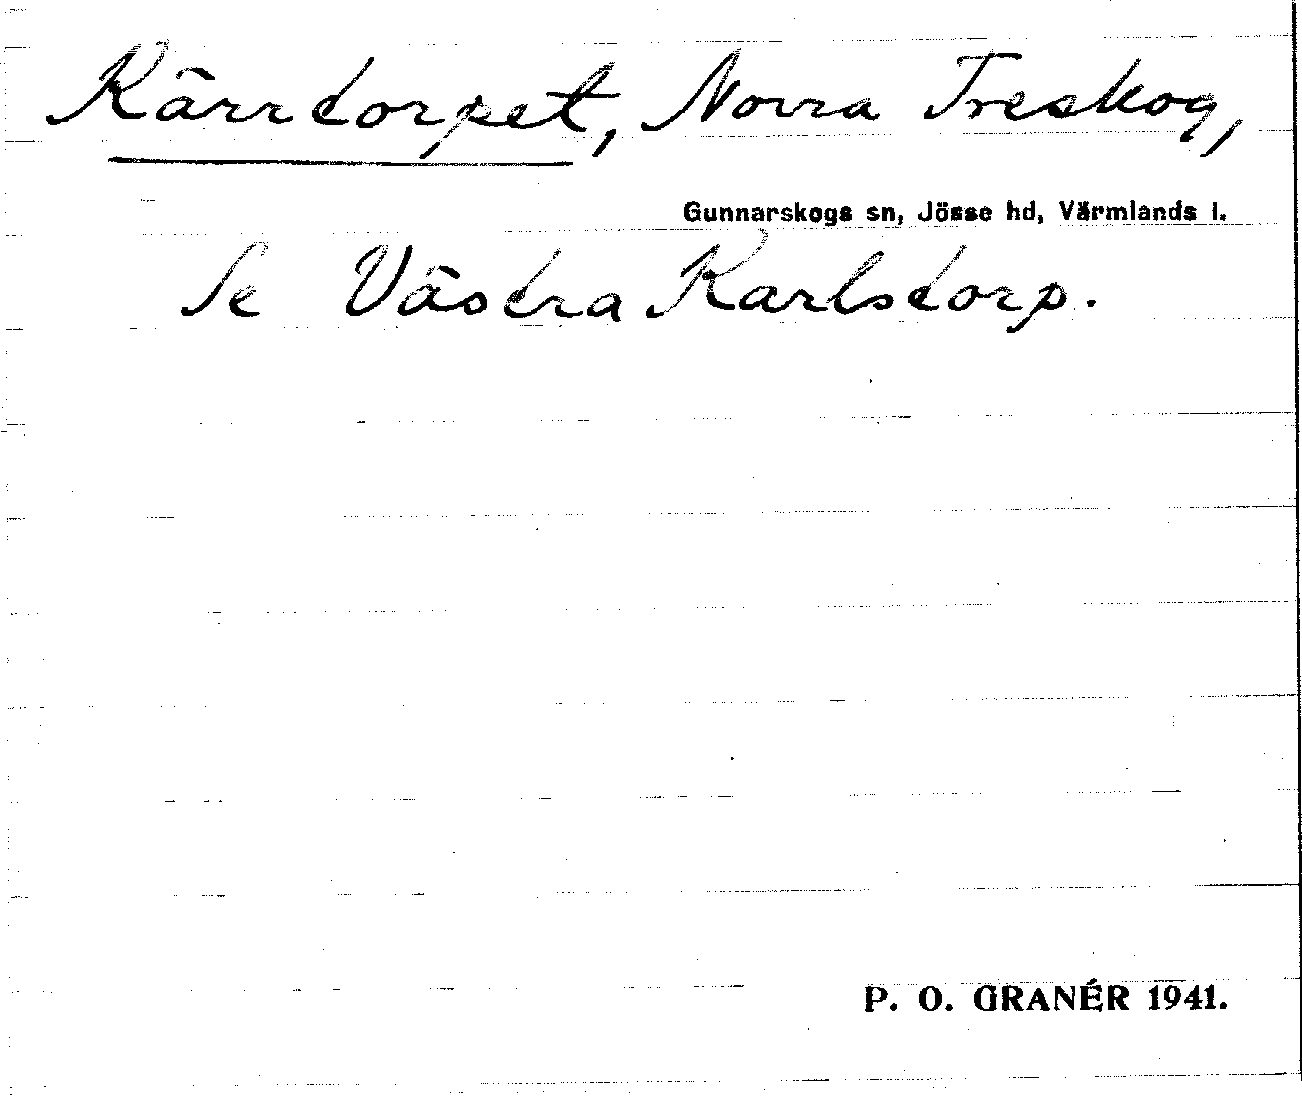 Kärrtorpet, Norra Treskog,
Gunnarskogs sn, Jösse hd, Värmlands l.
Se Västra Karlstorp.
P. O. GRANÉR 1941.